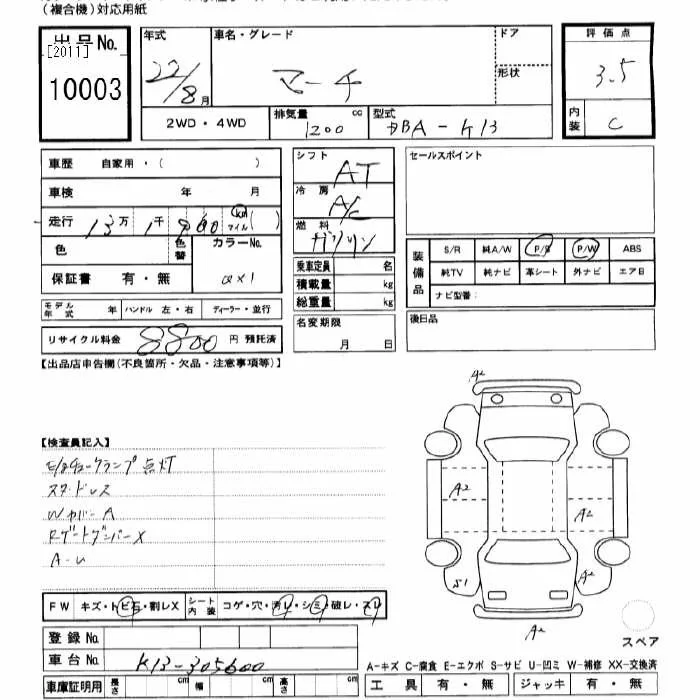 (複合機)対応用紙
出品 No.
[2011]
10003
年式 22/8月
車名・グレード マーチ
ドア
形状
評価点 3.5
内装 C
2WD・4WD
排気量 1200 cc
型式 DBA-K13
車歴 自家用・( )
車検 年 月
走行 13万 1千 900 km マイル ( )
色
色替
カラーNo. QX1
保証書 有・無
モデル年式 年 ハンドル 左・右 ディーラー・並行
リサイクル料金 8800 円 預託済
シフト AT
冷房 A/C
燃料 ガソリン
乗車定員 名
積載量 kg
総重量 kg
名変期限
月 日
セールスポイント
装備品
S/R 純A/W P/S P/W ABS
純TV 純ナビ 革シート 外ナビ エアB
ナビ型番:
後日品
【出品店申告欄(不良箇所・欠品・注意事項等)】
【検査員記入】
チェックランプ点灯
スタッドレス
Wカバー A
A-U
A2
A2
A2
S1
A2
A2
スペア
FW キズ・トビ石・割レX
シート内装 コゲ・穴・汚レ・シミ・破レ・スレ
登録 No.
車台 No. K13-305600
車庫証明用 長さ cm 幅 cm 高さ cm
A-キズ C-腐食 E-エクボ S-サビ U-凹ミ W-補修 XX-交換済
工具 有・無 ジャッキ 有・無